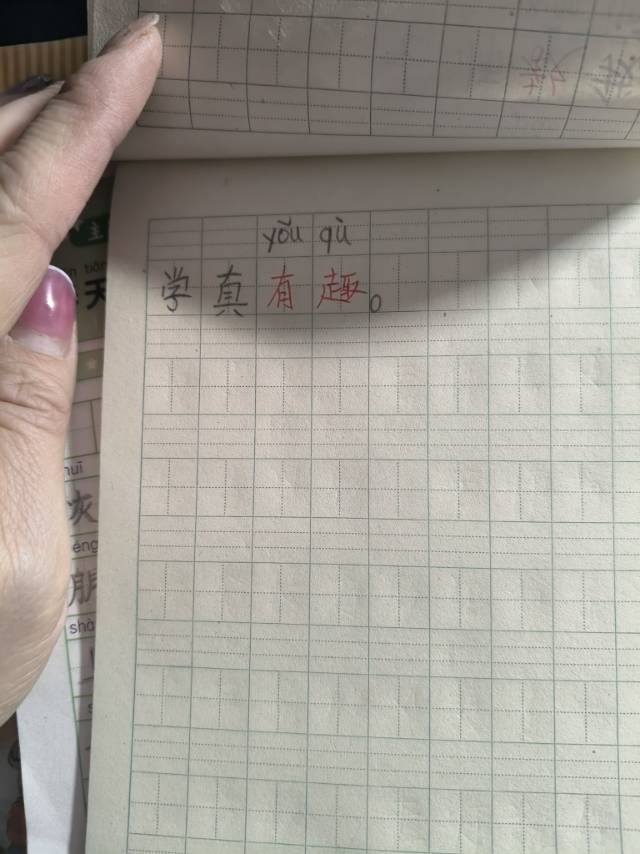 yǒu qù
学真有趣。
天
huī
灰
éng
朋
shà